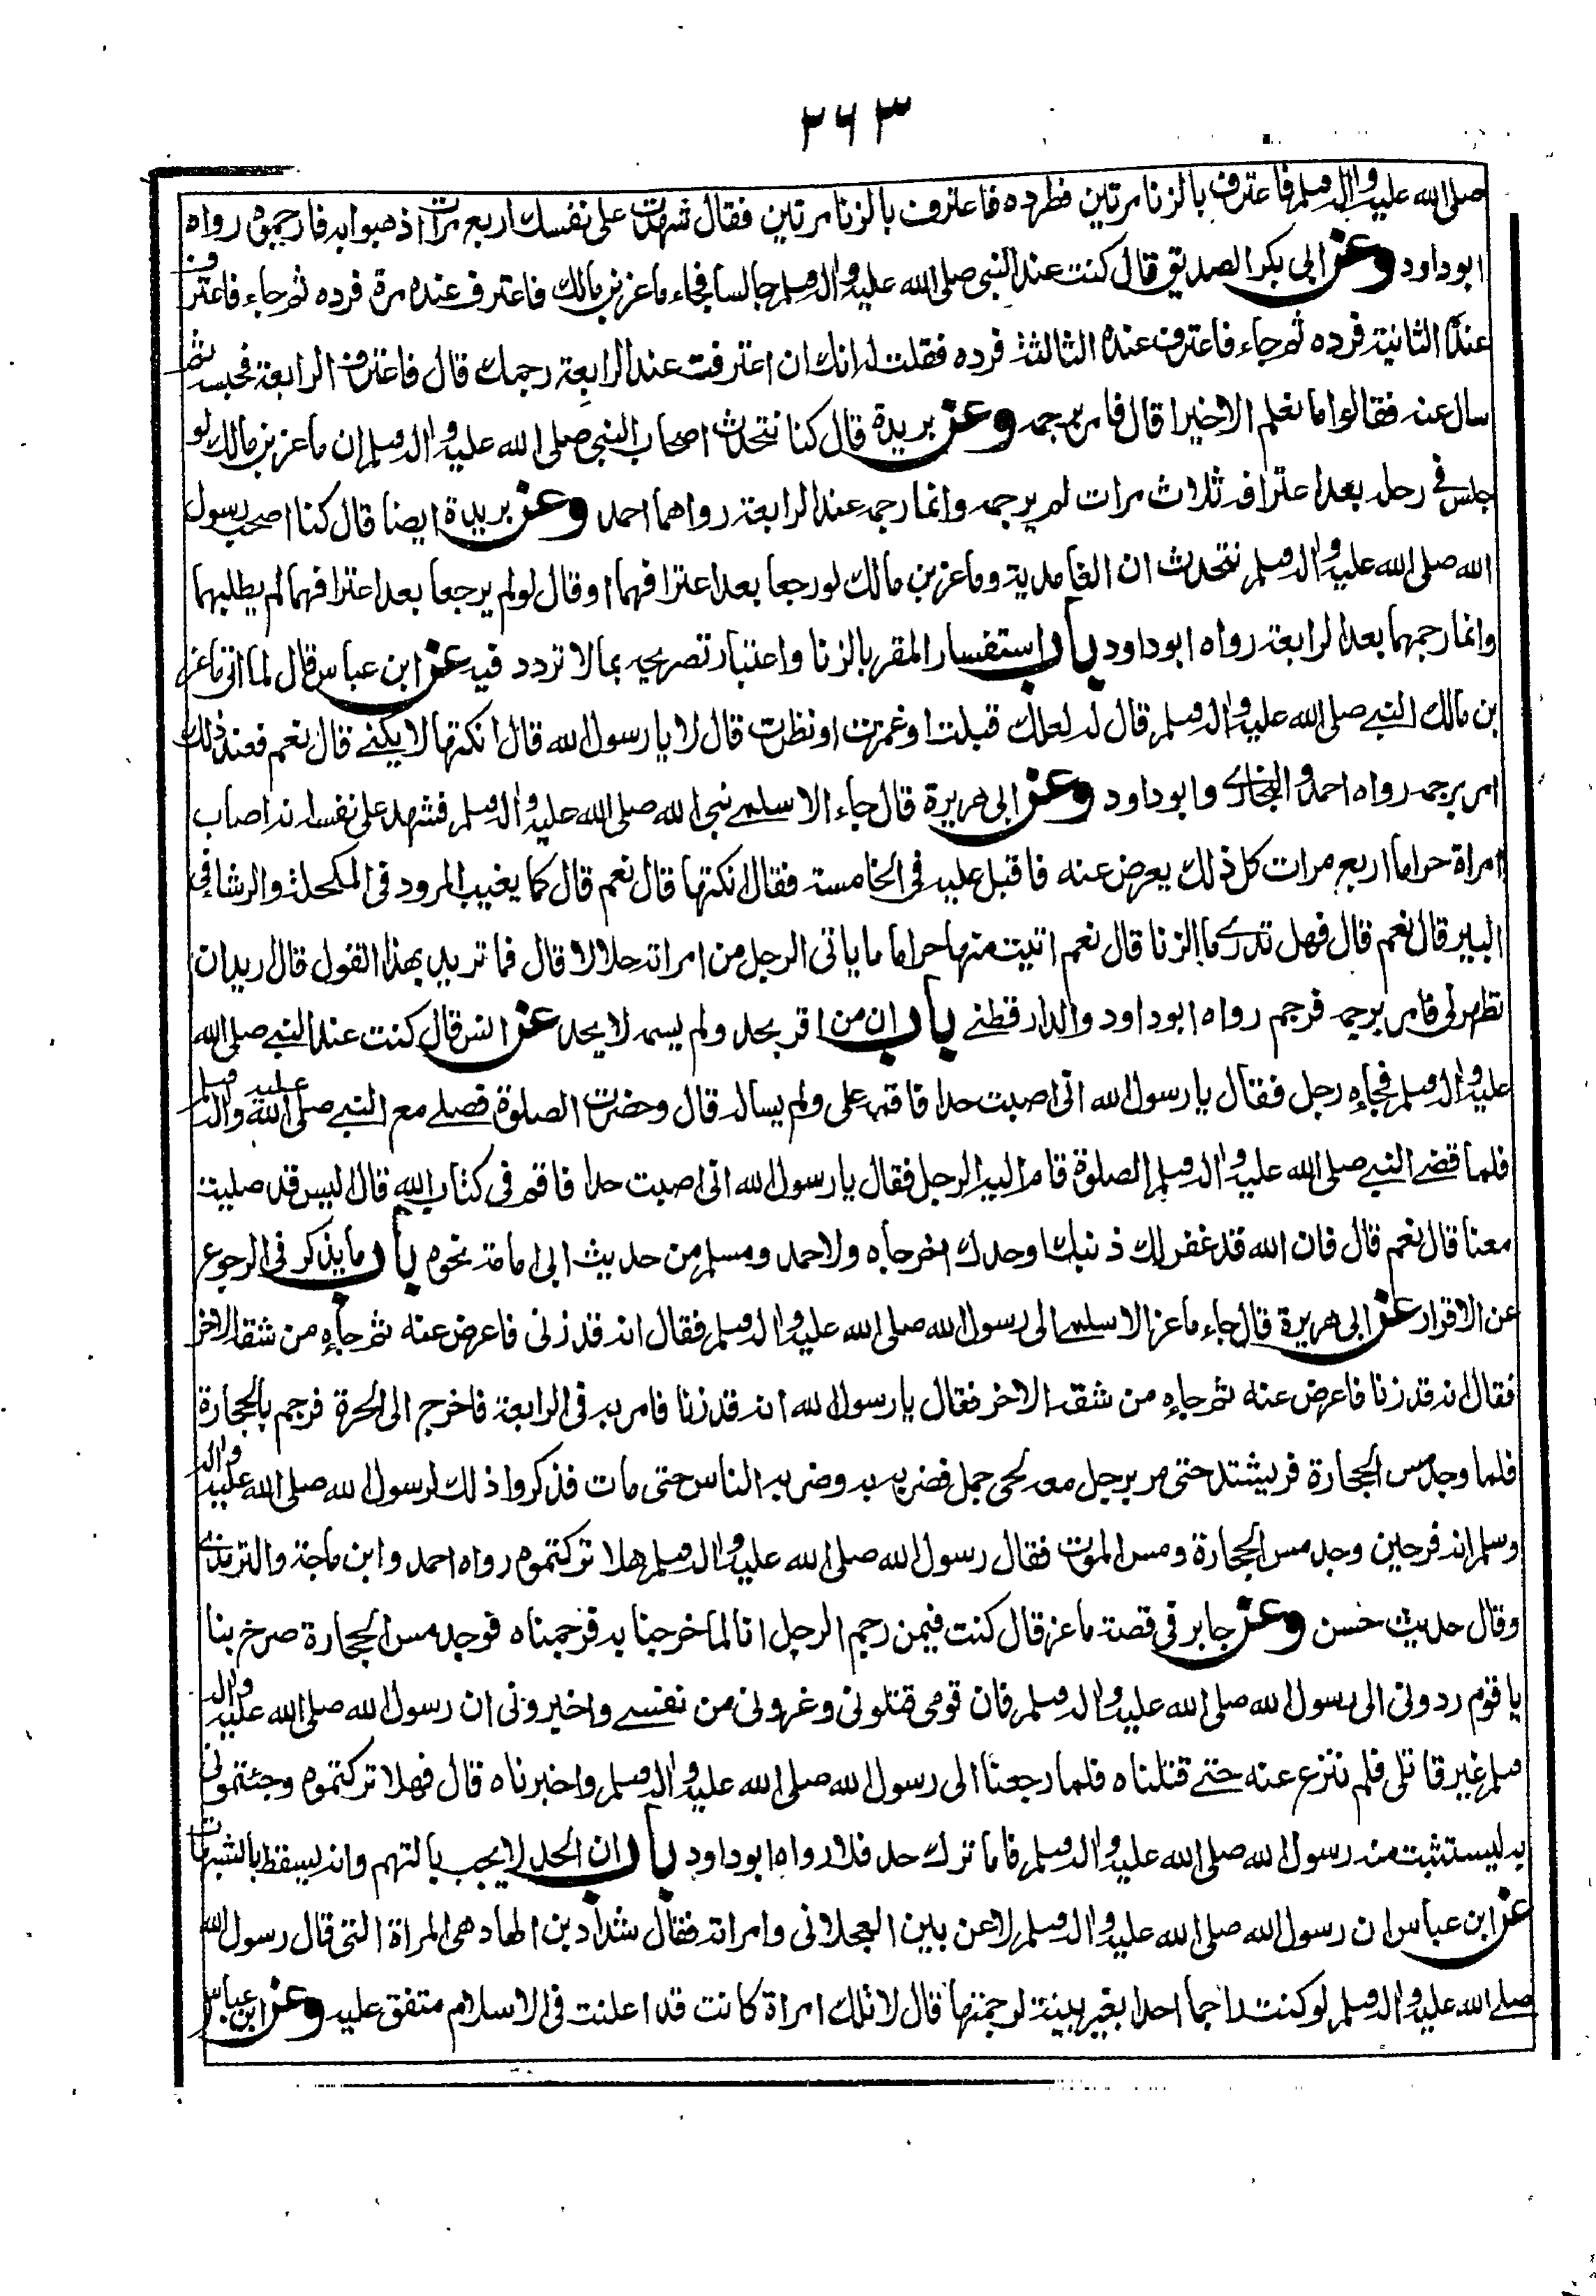 ٣٦٣
صلى الله عليه واله وسلم فاعترف بالزنا مرتين فطرده فاعترف بالزنا مرتين فقال شهدت على نفسك اربع مرات اذهبوا به فارجموه رواه
ابوداود وعن ابى بكر الصديق قال كنت عند النبى صلى الله عليه واله وسلم جالسا فجاء ماعز بن مالك فاعترف عنده مرة فرده ثم جاء فاعترف
عنده الثانية فرده ثم جاء فاعترف عنده الثالثة فرده فقلت له انك ان اعترفت عند الرابعة رجمك قال فاعترف الرابعة فحبسه ثم
سال عنه فقالوا ما نعلم الا خيرا قال فامر برجمه وعن بريدة قال كنا نتحدث اصحاب النبى صلى الله عليه واله وسلم ان ماعز بن مالك لو
جلس فى رحله بعد اعترافه ثلاث مرات لم يرجمه وانما رجمه عند الرابعة رواهما احمد وعن بريدة ايضا قال كنا اصحب رسول
الله صلى الله عليه واله وسلم نتحدث ان الغامدية وماعز بن مالك لو رجعا بعد اعترافهما او قال لو لم يرجعا بعد اعترافهما لم يطلبهما
وانما رجمهما بعد الرابعة رواه ابوداود باب استفسار المقر بالزنا واعتبار تصريحه بما لا تردد فيه عن ابن عباس قال لما اتى ماعز
بن مالك النبے صلى الله عليه واله وسلم قال له لعلك قبلت او غمزت او نظرت قال لا يا رسول الله قال انكتها لا يكنے قال نعم فعند ذلك
امر برجمه رواه احمد والبخارے وابوداود وعن ابى هريرة قال جاء الاسلمے نبى الله صلى الله عليه واله وسلم فشهد على نفسه انه اصاب
امراة حراما اربع مرات كل ذلك يعرض عنه فاقبل عليه فى الخامسة فقال انكتها قال نعم قال كما يغيب المرود فى المكحلة والرشا فى
البير قال نعم قال فهل تدرے ما الزنا قال نعم اتيت منها حراما ما ياتى الرجل من امراته حلالا قال فما تريد بهذا القول قال اريد ان
تطهرنى فامر برجمه فرجم رواه ابوداود والدارقطنے باب ان من اقر بحد ولم يسمه لا يحد عن انس قال كنت عند النبے صلى الله
عليه واله وسلم فجاءه رجل فقال يا رسول الله انى اصبت حدا فاقمه على ولم يساله قال وحضرت الصلوة فصلے مع النبے صلى الله عليه واله وسلم
فلما قضے النبے صلى الله عليه واله وسلم الصلوة قام اليه الرجل فقال يا رسول الله انى اصبت حدا فاقم فى كتاب الله قال اليس قد صليت
معنا قال نعم قال فان الله قد غفر لك ذنبك او حدك اخرجاه ولاحمد ومسلم من حديث ابى امامة نحوه باب ما يذكر فى الرجوع
عن الاقرار عن ابى هريرة قال جاء ماعز الاسلمے الى رسول الله صلى الله عليه واله وسلم فقال انه قد زنى فاعرض عنه ثم جاءه من شقه الاخر
فقال انه قد زنا فاعرض عنه ثم جاءه من شقه الاخر فقال يا رسول الله انه قد زنا فامر به فى الرابعة فاخرج الى الحرة فرجم بالحجارة
فلما وجد مس الحجارة فر يشتد حتى مر برجل معه لحى جمل فضربه به وضربه الناس حتى مات فذكروا ذلك لرسول الله صلى الله عليه واله
وسلم انه فر حين وجد مس الحجارة ومس الموت فقال رسول الله صلى الله عليه واله وسلم هلا تركتموه رواه احمد وابن ماجة والترمذے
وقال حديث حسن وعن جابر فى قصة ماعز قال كنت فيمن رجم الرجل انا لما خرجنا به فرجمناه فوجد مس الحجارة صرخ بنا
يا قوم ردونى الى رسول الله صلى الله عليه واله وسلم فان قومى قتلونى وغرونى من نفسے واخبرونى ان رسول الله صلى الله عليه واله
وسلم غير قاتلى فلم ننزع عنه حتے قتلناه فلما رجعنا الى رسول الله صلى الله عليه واله وسلم واخبرناه قال فهلا تركتموه وجئتمونى
به ليستثبت منه رسول الله صلى الله عليه واله وسلم فاما ترك حد فلا رواه ابوداود باب ان الحد لا يجب بالتهم وانه يسقط بالشبهات
عن ابن عباس ان رسول الله صلى الله عليه واله وسلم لاعن بين العجلانى وامراته فقال شداد بن الهاد هى المراة التى قال رسول الله
صلے الله عليه واله وسلم لو كنت راجما احدا بغير بينة لرجمتها قال لا تلك امراة كانت قد اعلنت فى الاسلام متفق عليه وعن ابن عباس